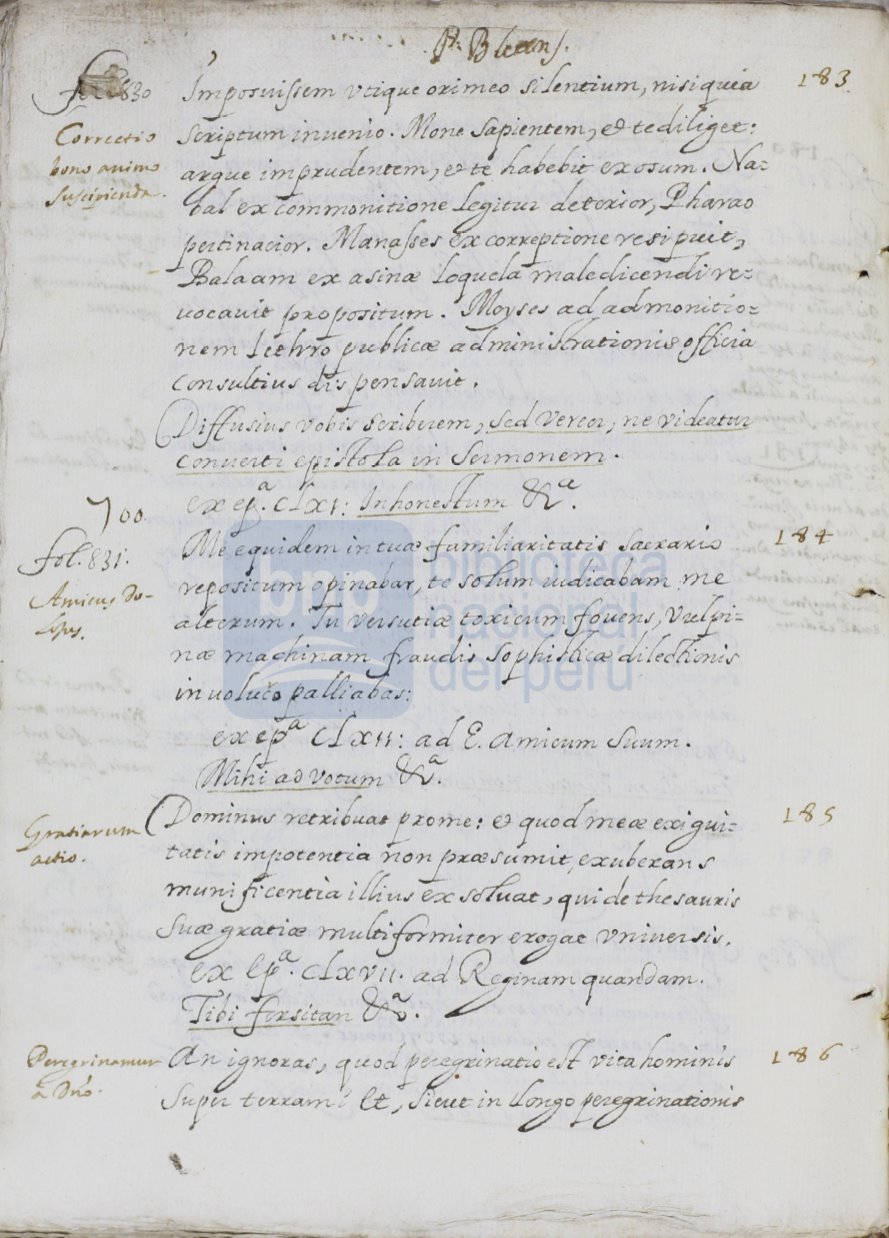 P. Blesens.
fol. 830 Imposuissem utique ori meo silentium, nisi quia 183
Correctio
bono animo
suscipienda.
scriptum invenio. Mone sapientem, et te diliget:
argue imprudentem, et te habebit exosum. Na=
bal ex commonitione legitur deterior, Pharao
pertinacior. Manasses ex correptione resipuit,
Balaam ex asinæ loquela maledicendi re=
vocavit propositum. Moyses ad admonitio=
nem Iethro publicæ administrationis officia
consultius dispensavit.
Diffusius vobis scriberem, sed vereor, ne videatur
converti epistola in sermonem.
ex epª. CLXI: Inhonestum &ª.
700.
fol. 831. Me equidem in tuæ familiaritatis sacrario 184
Amicus Do-
losus.
repositum opinabar, te solum iudicabam me
alterum. Tu versutiæ toxicum fovens, vulpi=
næ machinam fraudis sophisticæ dilectionis
involucro palliabas:
ex epª CLXII: ad E. Amicum suum.
Mihi ad votum &ª.
Gratiarum
actio.
Dominus retribuat pro me: et quod meæ exigui= 185
tatis impotentia non præsumit, exuberans
munificentia illius exsolvat, qui de thesauris
suæ gratiæ multiformiter erogat universis.
ex Epª. CLXVII. ad Reginam quandam.
Tibi forsitan &ª.
Peregrinamur
a Dño.
An ignoras, quod peregrinatio est vita hominis 186
super terram? Et, sicut in longo peregrinationis
bnp biblioteca
nacional
del perú